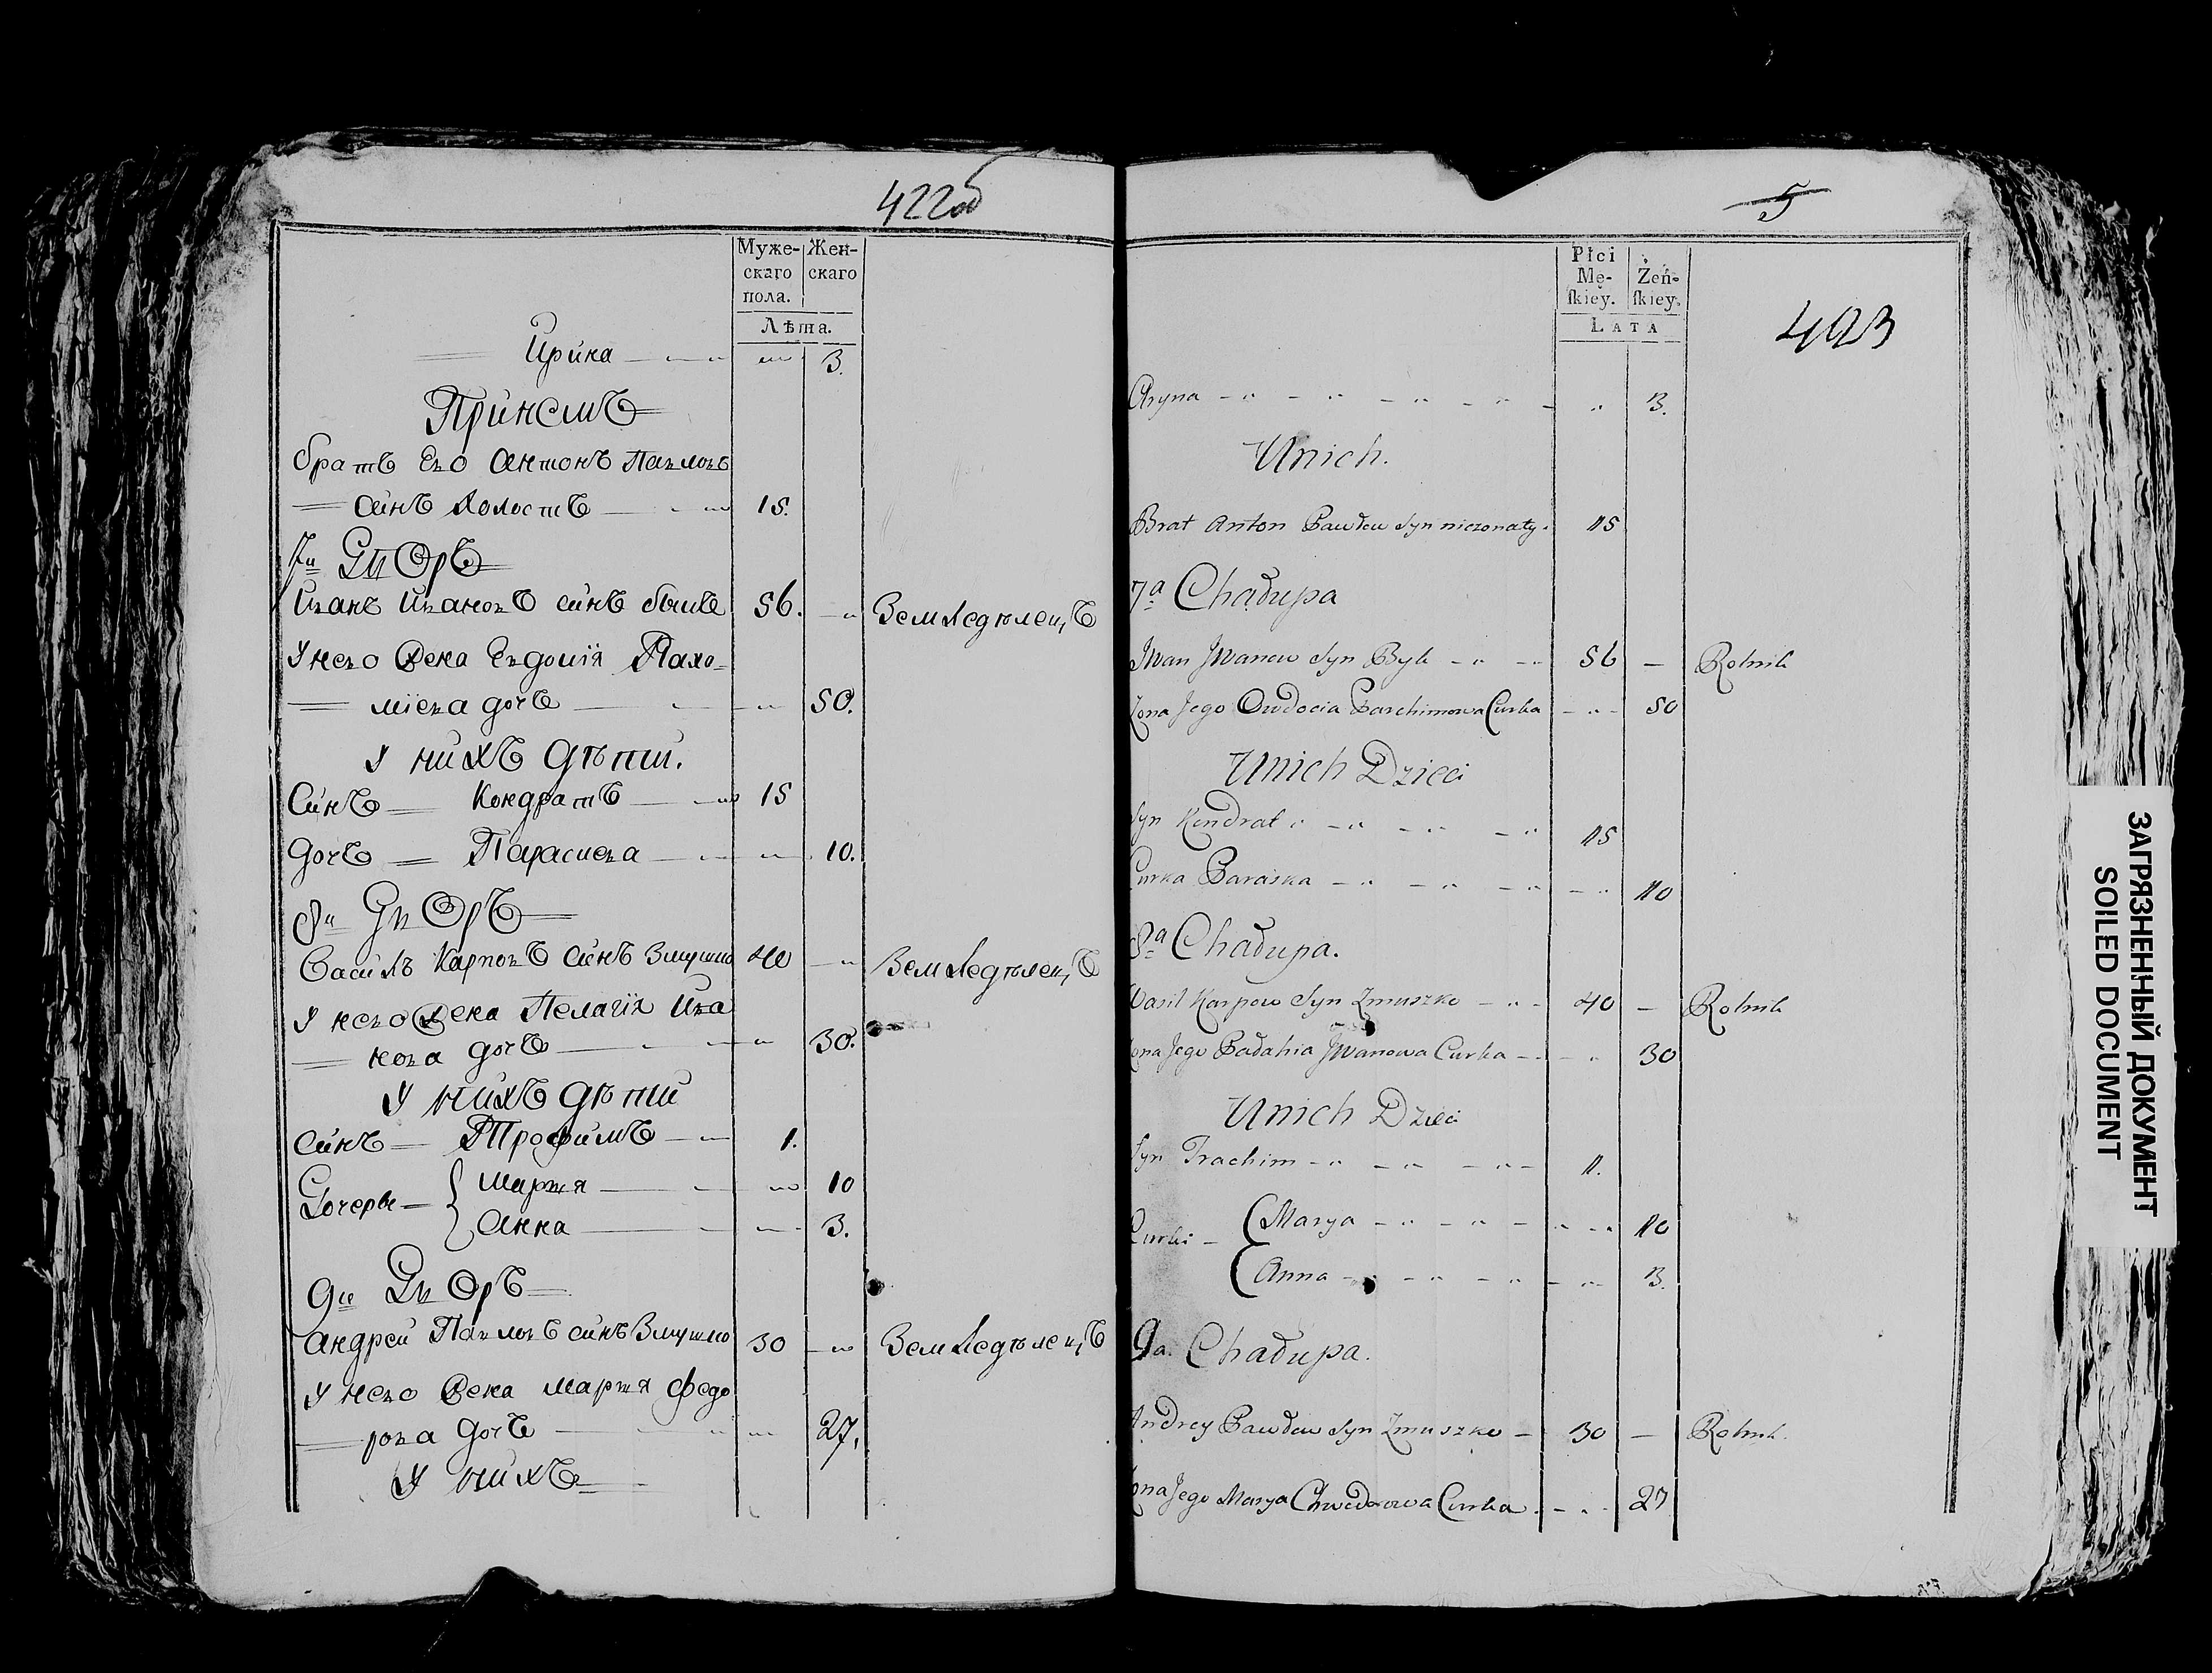 422об
Муже-
скаго
пола.
Жен-
скаго
Лѣта.
Ирина 3.
При немъ
братъ Его Антонъ Павловъ
синъ холостъ 15.
7й Дворъ
Иванъ Ивановъ синъ быкъ 56. Земледѣлецъ
У него Жена Евдокія Пахо-
міева дочь 50.
У нихъ дѣти.
Синъ Кондратъ 15
Дочь Парасиева 10.
8й Дворъ
Василь Карповъ синъ Змушко 40 Земледѣлецъ
У него Жена Пелагія Ива
нова дочь 30.
У нихъ дѣти
Синъ Трофимъ 1.
Дочеры Марья 10
Анна 3.
9й Дворъ
Андрей Павловъ синъ Змушко 30 Земледѣлецъ
У него Жена Марья Федо
рова дочь 27.
У нихъ
5
423
Płci
Mę-
ſkiey.
Żeń-
ſkiey.
LATA
Aryna 3.
Unich.
Brat Anton Pawłow Syn nieżonaty. 15
7a Chałupa
Jwan Jwanow Syn Byk 56 — Rolnik
Żona Jego Owdocia Parchimowa Curka 50
Unich Dzieci
Syn Kondrat 15
Curka Paraska 10
8a Chałupa.
Wasil Karpow Syn Zmuszko 40 — Rolnik
Żona Jego Pałahia Jwanowa Curka 30
Unich Dzieci
Syn Trachim 1.
Curki Marya 10
Anna 3.
9a. Chałupa.
Andrey Pawłow Syn Zmuszko 30 — Rolnik.
Żona Jego Marya Chwedorowa Curka 27
ЗАГРЯЗНЕННЫЙ ДОКУМЕНТ
SOILED DOCUMENT